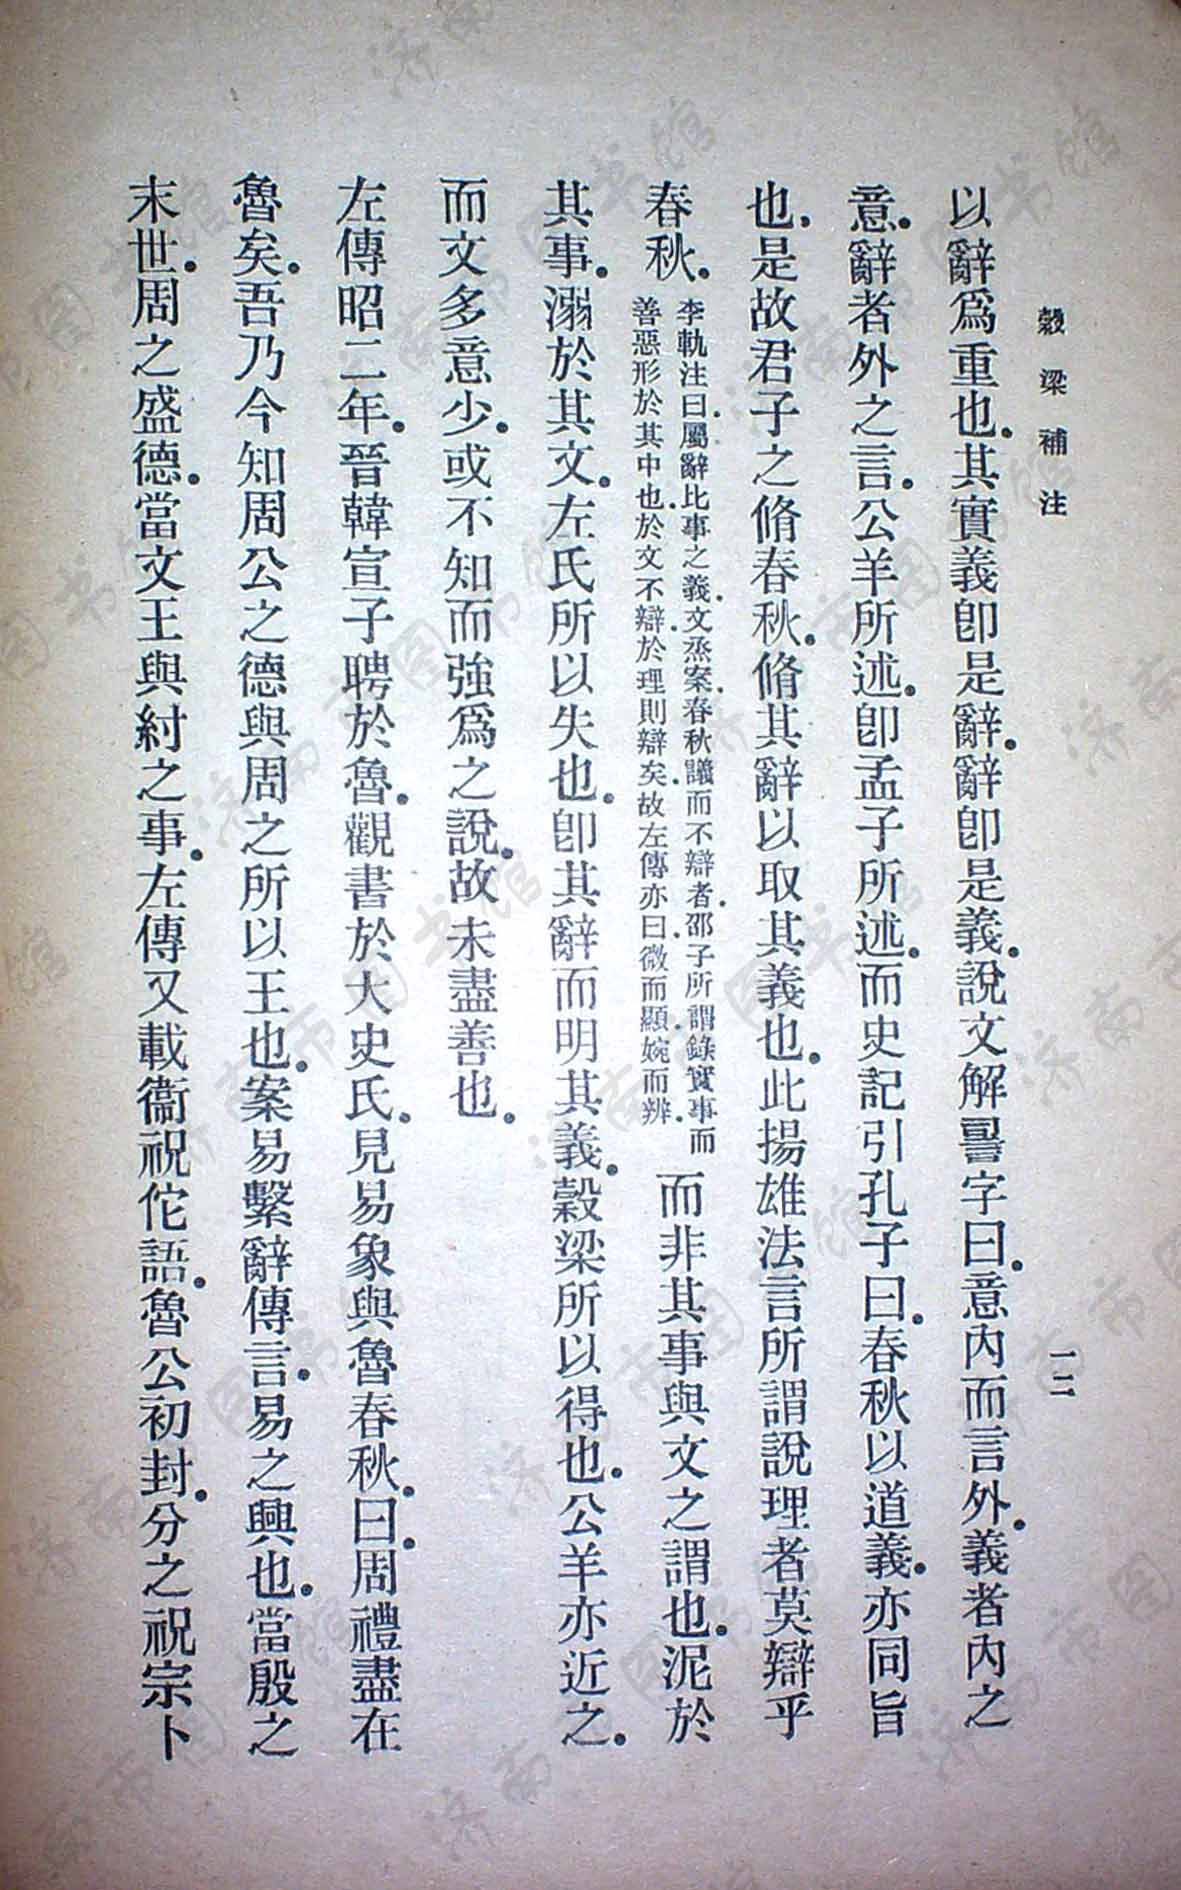 穀梁補注
一二
以辭爲重也。其實義卽是辭。辭卽是義。說文解䛐字曰。意內而言外。義者內之
意。辭者外之言。公羊所述。卽孟子所述。而史記引孔子曰。春秋以道義。亦同旨
也。是故君子之脩春秋。脩其辭以取其義也。此揚雄法言所謂說理者莫辯乎
春秋。
李軌注曰。屬辭比事之義。文烝案。春秋議而不辯者。邵子所謂錄實事而
善惡形於其中也。於文不辯。於理則辯矣。故左傳亦曰。微而顯。婉而辨。
而非其事與文之謂也。泥於
其事。溺於其文。左氏所以失也。卽其辭而明其義。穀梁所以得也。公羊亦近之。
而文多意少。或不知而強爲之說。故未盡善也。
左傳昭二年。晉韓宣子聘於魯。觀書於大史氏。見易象與魯春秋。曰。周禮盡在
魯矣。吾乃今知周公之德與周之所以王也。案易繫辭傳言。易之興也。當殷之
末世。周之盛德。當文王與紂之事。左傳又載衞祝佗語。魯公初封。分之祝宗卜